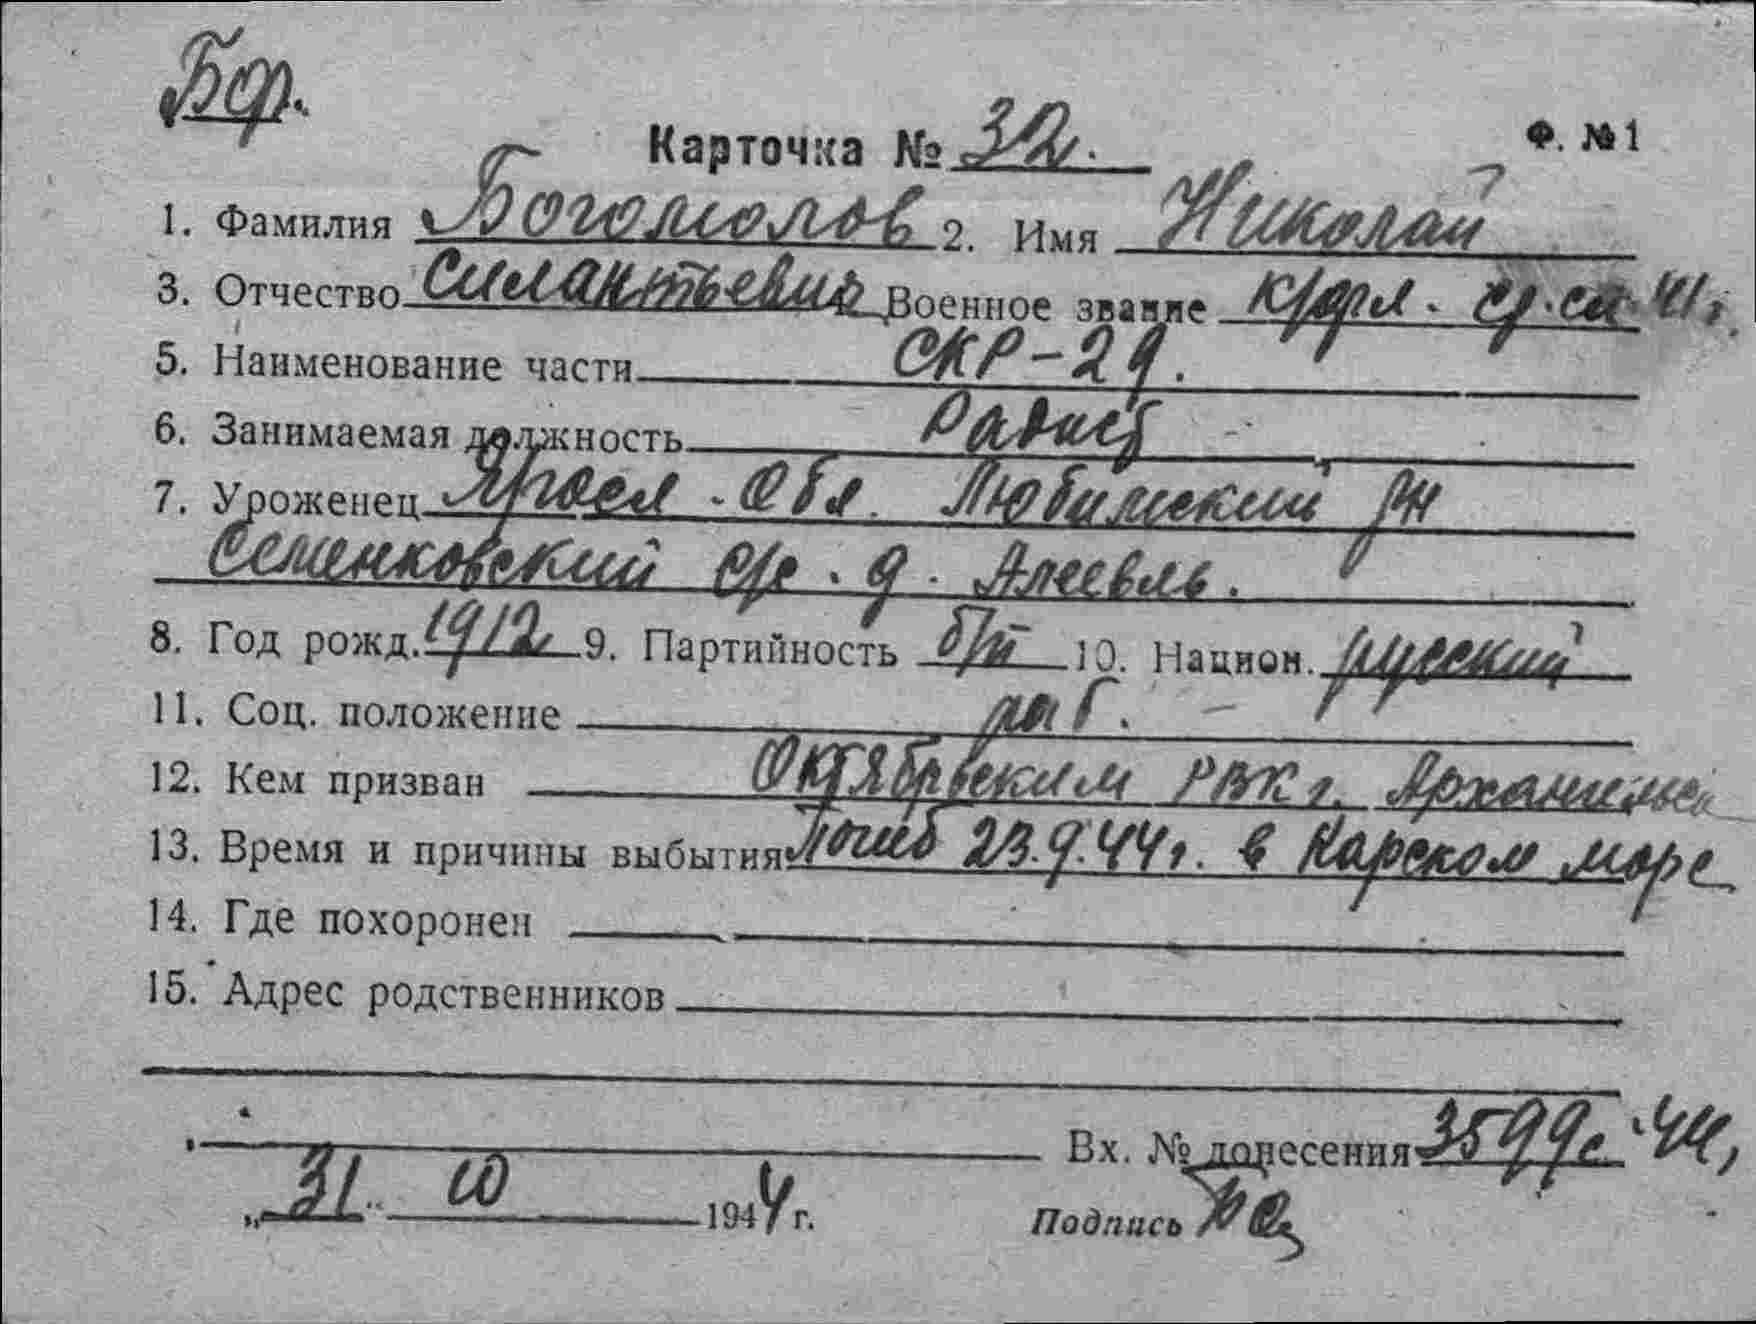 Бф.
Карточка № 32. Ф. №1
1. Фамилия Богомолов 2. Имя Николай
3. Отчество Силантьевич Военное звание к/фл. ср. сп.
5. Наименование части СКР-29.
6. Занимаемая должность Радист
7. Уроженец Яросл. Обл. Любимский рн
Семенковский с/с. д.
8. Год рожд. 1912 9. Партийность б/п 10. Национ. русский
11. Соц. положение
12. Кем призван Октябрьским РВК г. Архангельск
13. Время и причины выбытия Погиб 23.9.44г. в Карском море
14. Где похоронен
15. Адрес родственников
Вх. № донесения 3599с 44,
„31" 10 1944 г. Подпись